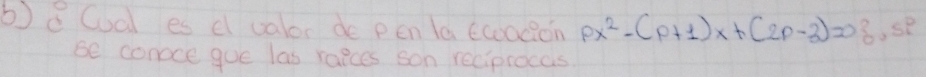 b) ¿ Cual es el valor de p en la ecuación px² - (p+1)x + (2p-3) = 0 ?, si
se conoce que las raíces son reciprocas.